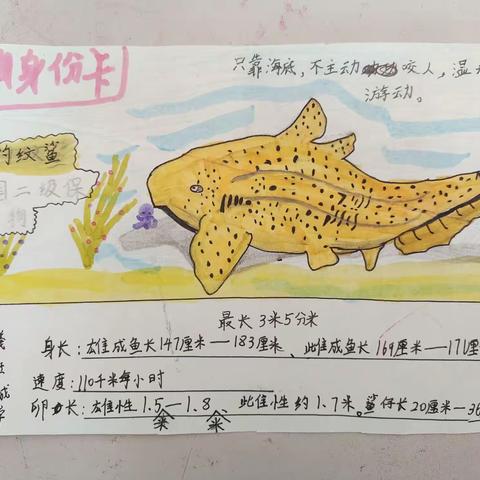 身份卡
只靠海底，不主动咬人，温
游动。
纹鲨
国二级保
物
最长 3米5分米
身长：雄成鱼长147厘米—183厘米、雌成鱼长169厘米—171厘
速度：110千米每小时
卵长：雄性1.5米—1.8米、雌性约1.7米。鲨仔长20厘米—36